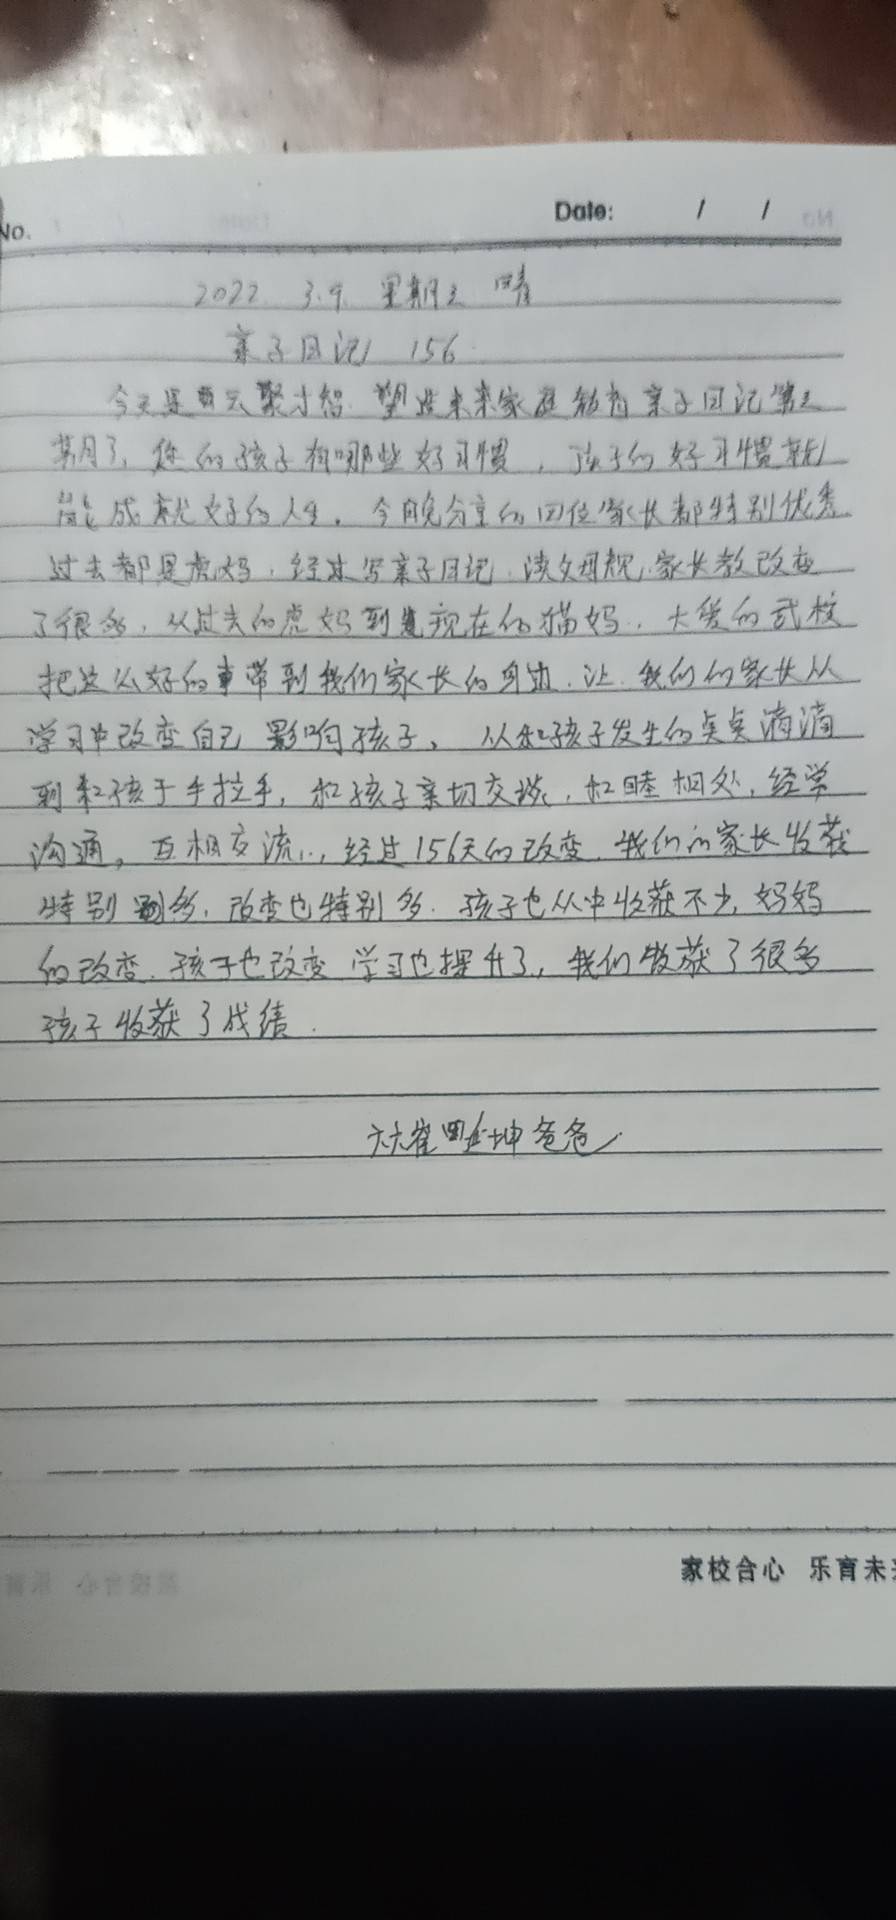 No. Date: / /
2022 3.9 星期三 晴
亲子日记 156
今天是 云聚小智 塑造未来家庭教育亲子日记第
期了,您的孩子有哪些好习惯,孩子的好习惯就
能成就好的人生。今晚分享的四位家长都特别优秀
过去都是虎妈,经过写亲子日记,读父母规,家长教改变
了很多,从过去的虎妈到 现在的猫妈,大爱的武校
把这么好的事带到我们家长的身边.让.我们的家长从
学习中改变自己 影响孩子,从和孩子发生的点点滴滴
到和孩子手拉手,和孩子亲切交谈,和睦相处,经常
沟通,互相交流..,经过156天的改变.我们的家长收获
特别 多.改变也特别多.孩子也从中收获不少,妈妈
的改变.孩子也改变 学习也提升了,我们收获了很多
孩子收获了成绩.
六六崔 坤爸爸
家校合心 乐育未